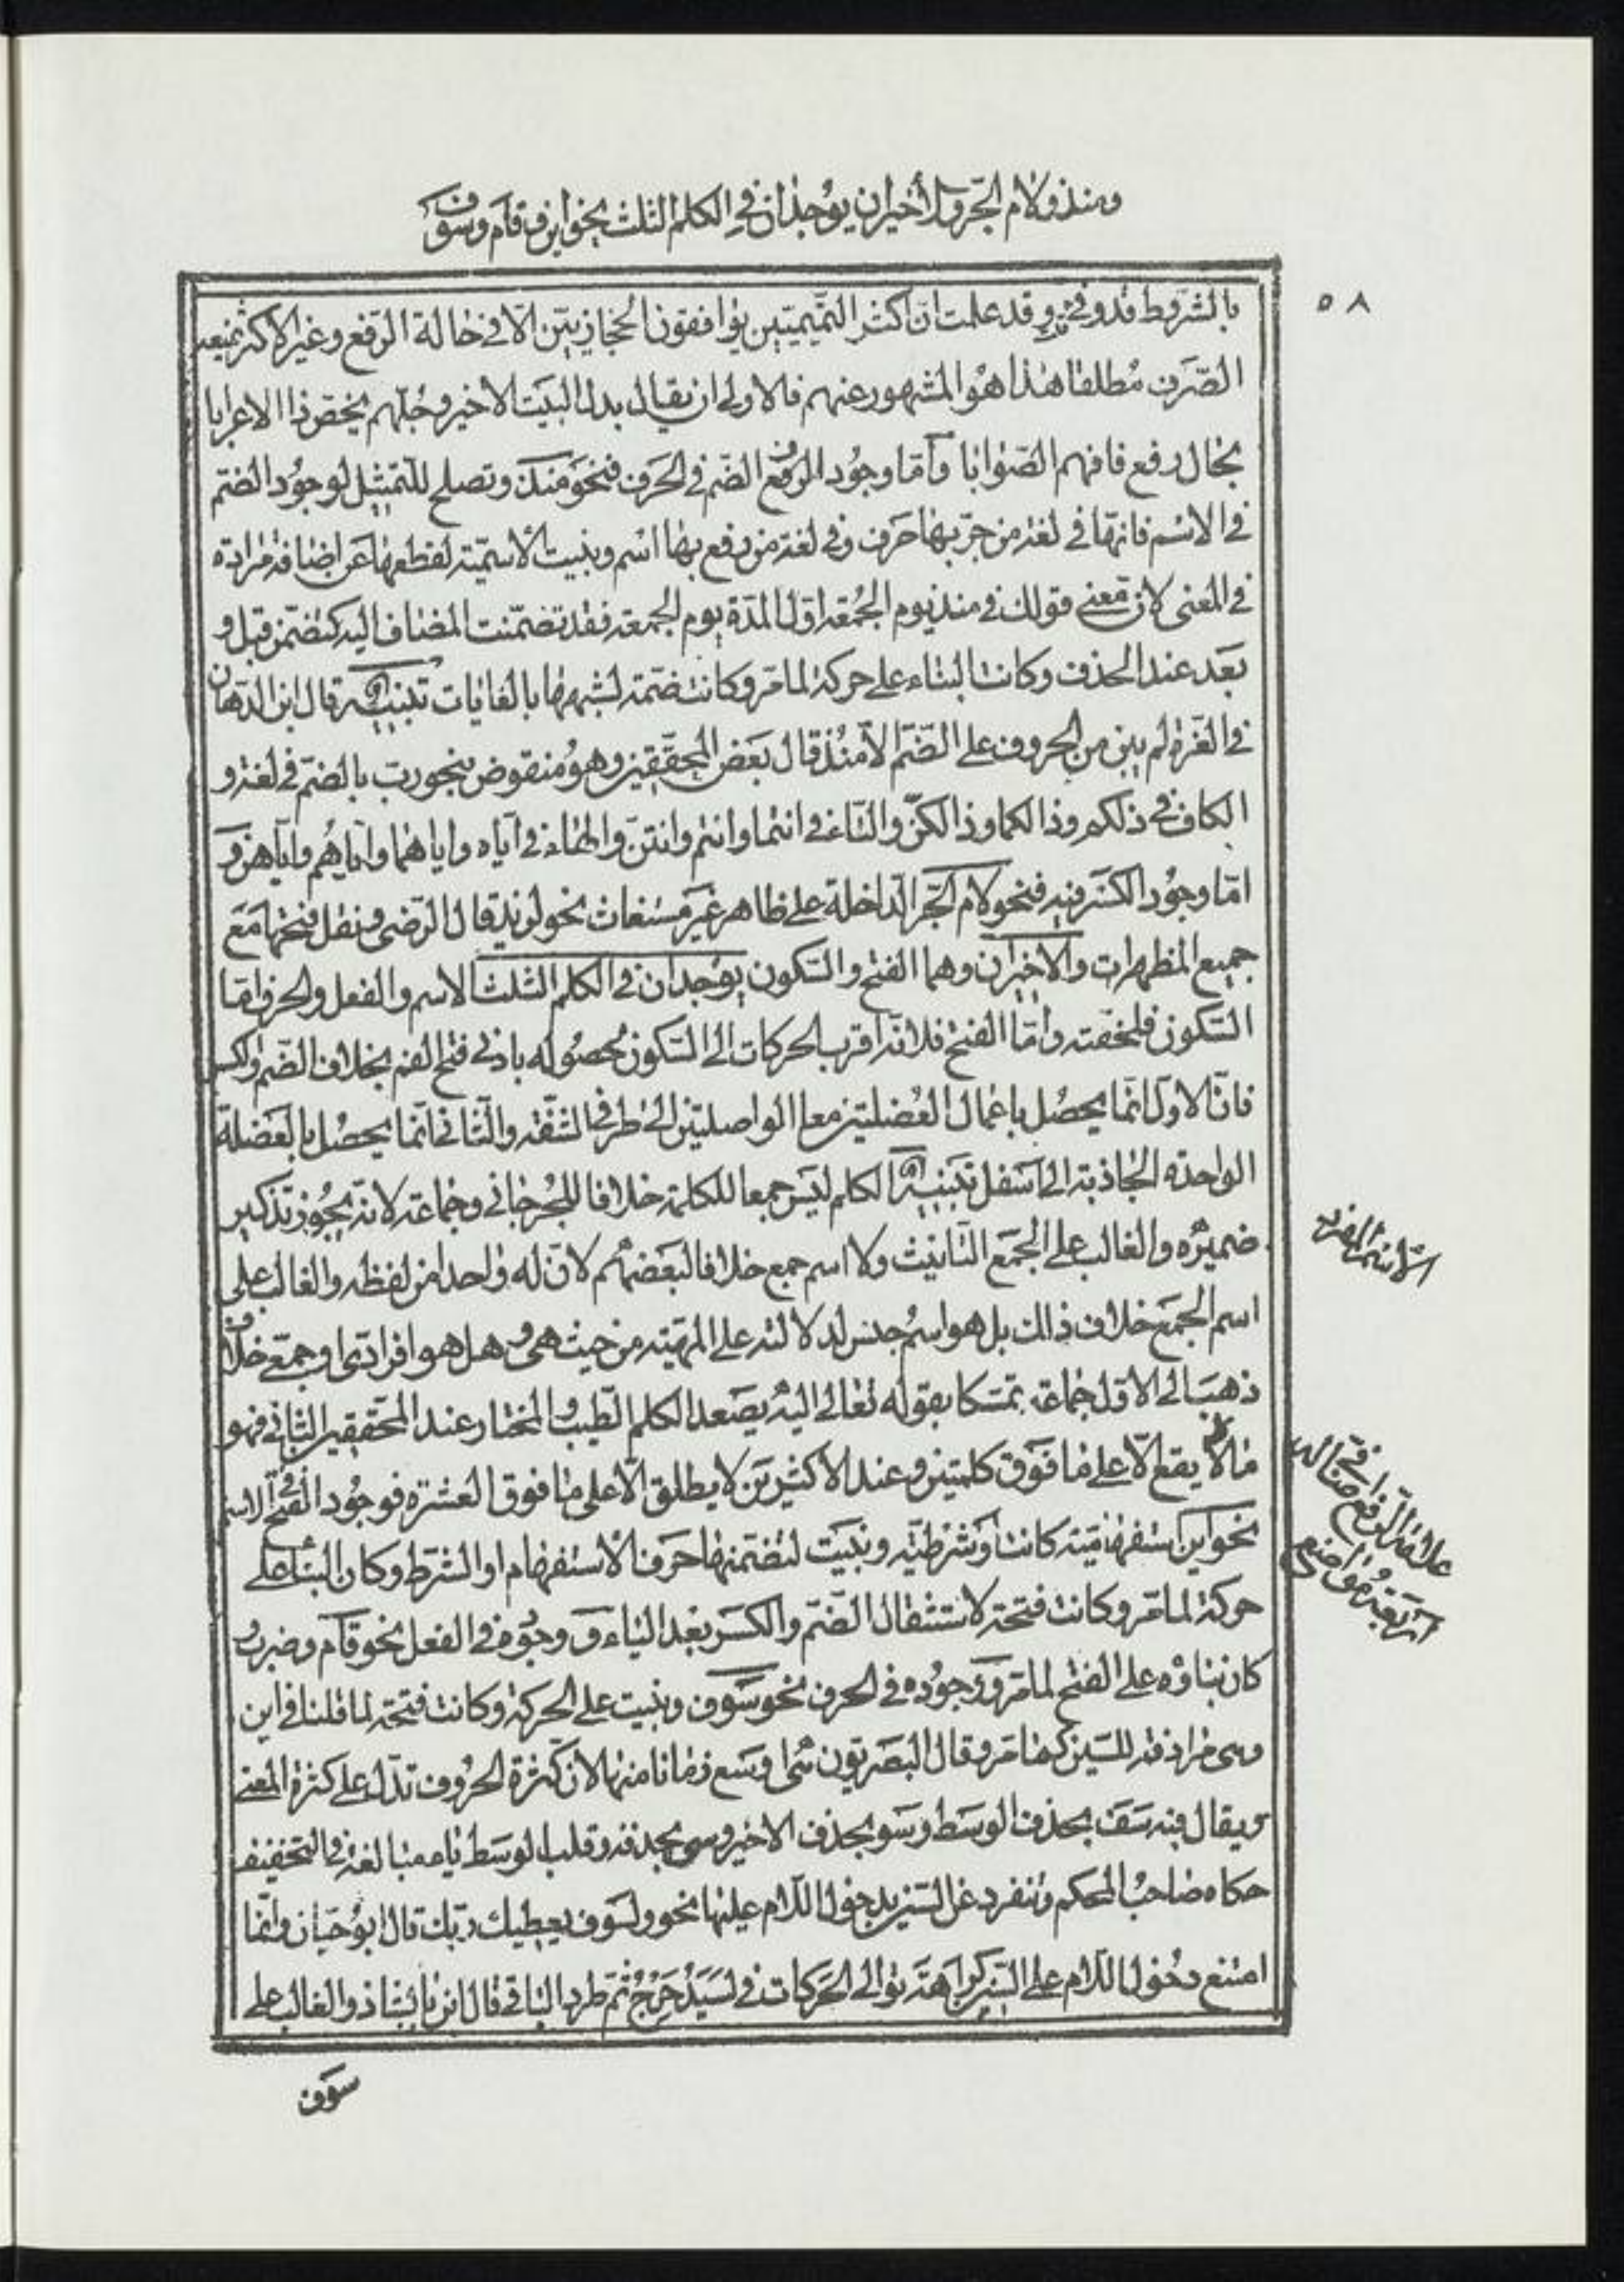 ومنذ ولام الجر والأخيران يوجدان في الكلم الثلث نحو اين وقام وسوف
٥٨
بالشروط قد وفى وقد علمت ان اكثر التميميين يوافقون الحجازيين الا في حالة الرفع وغير الاكثر يمنعه
الصرف مطلقا هذا هو المشهور عنهم فالاولى ان يقال بدل البيت الاخير وجلهم يخص ذا الاعرابا
بحال رفع فافهم الصوابا وأما وجود الضم في الحرف فنحو منذ وتصلح للتمثيل لوجود الضم
في الاسم فانها في لغة من جر بها حرف وفي لغة من رفع بها اسم وبنيت الاسمية لقطعها عن اضافة مرادة
في المعنى لان معنى قولك في منذ يوم الجمعة اول المدة يوم الجمعة فقد تضمنت المضاف اليه كتضمن قبل و
بعد عند الحذف وكانت البناء على حركة لما مر وكانت ضمة لشبهها بالغايات تنبيه قال ابن الدهان
في الغرة لم يبن من الحروف على الضم الا منذ قال بعض المحققين وهو منقوض بنحو رب بالضم في لغة و
الكاف في ذلكم وذالكما وذالكن والتاء في انتما وانتم وانتن والهاء في اياه واياهما واياهم واياهن و
اما وجود الكسر فيه فنحو لام الجر الداخلة على ظاهر غير مستغاث نحو لزيد قال الرضى ونقل فتحها مع
جميع المظهرات والاخيران وهما الفتح والسكون يوجدان في الكلم الثلث الاسم والفعل والحرف اما
السكون فلخفته واما الفتح فلانه اقرب الحركات الى السكون لحصوله بادنى فتح الفم بخلاف الضم والكسر
فان الاول انما يحصل باعمال العضلتين معا الواصلتين الى طرفي الشفة والثاني انما يحصل بالعضلة
الواحدة الجاذبة الى اسفل تنبيه الكلم ليس جمعا للكلمة خلافا للجرجاني وجماعة لانه يجوز تذكير
ضميره والغالب على الجمع التانيث ولا اسم جمع خلافا لبعضهم لان له واحدا من لفظه والغالب على
اسم الجمع خلاف ذالك بل هو اسم جنس لدلالته على المهية من حيث هي وهل هو افرادى او جمعى خلاف
ذهب الى الاول جماعة تمسكا بقوله تعالى اليه يصعد الكلم الطيب والمختار عند المحققين الثاني فهو
ما لا يقع الا على ما فوق كلمتين وعند الاكثرين لا يطلق الا على ما فوق العشرة فوجود الفتح في الاسم
نحو اين استفهامية كانت او شرطية وبنيت لتضمنها حرف الاستفهام او الشرط وكان البناء على
حركة لما مر وكانت فتحة لاستثقال الضم والكسر بعد الياء و وجوده في الفعل نحو قام وضرب و
كان بناؤه على الفتح لما مر و وجوده في الحرف نحو سوف وبنيت على الحركة وكانت فتحة لما قلنا في اين
وهى مرادفة للسين كما مر وقال البصريون هى اوسع زمانا منها لان كثرة الحروف تدل على كثرة المعنى
ويقال فيه سف بحذف الوسط وسو بحذف الاخير وسى بحذفه وقلب الوسط ياء مبالغة في التخفيف
حكاه صاحب المحكم وتنفرد عن السين بدخول اللام عليها نحو ولسوف يعطيك ربك قال ابو حيان وانما
امتنع دخول اللام على السين كراهة توالي الحركات في لسيدحرج ثم طرد الباقي قال ابن بابشاذ والغالب على
سوف